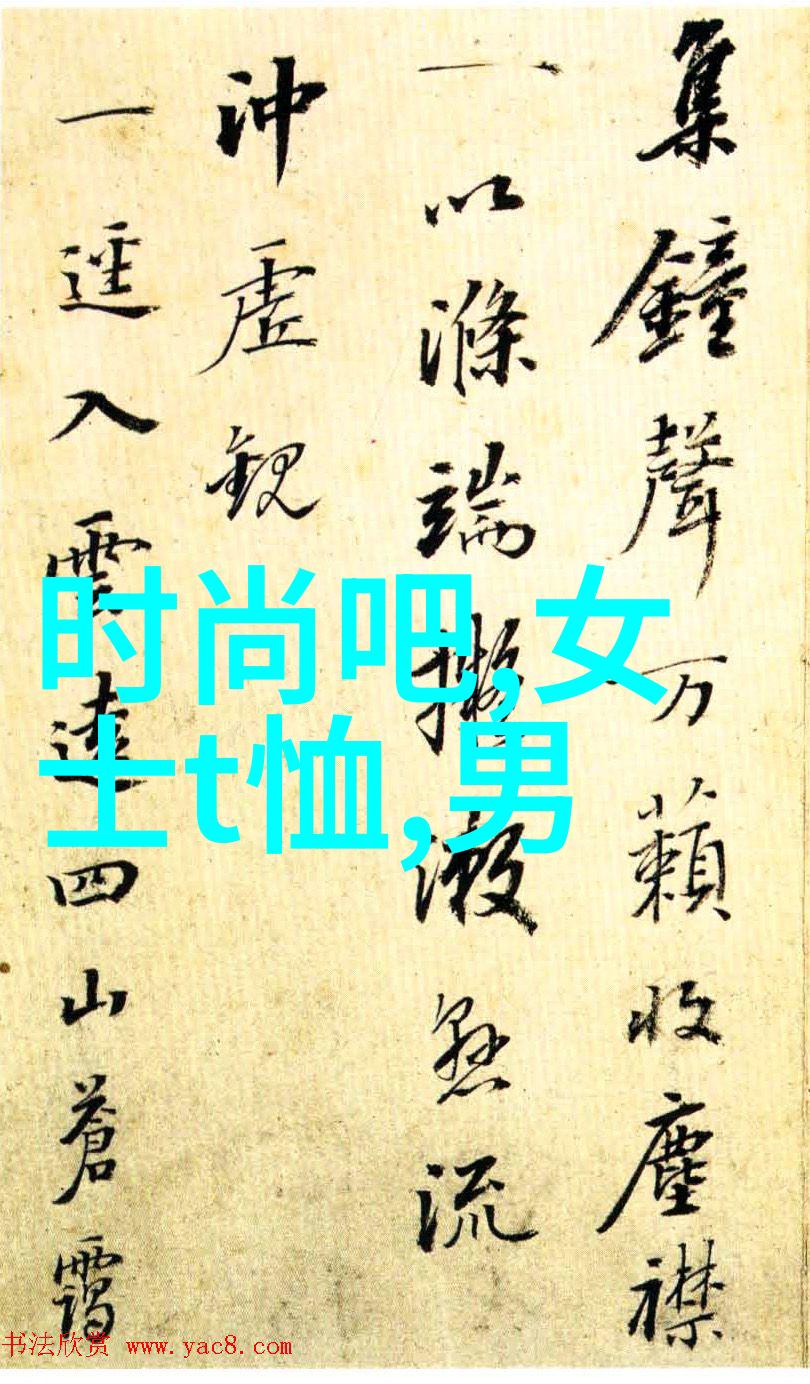 集鐘聲万籟收塵襟
一以滌端擬漱懸流
沖虛觀
一逕入雲遠四山蒼靄
时尚吧,女
士t恤,男
书法欣赏 www.yac8.com